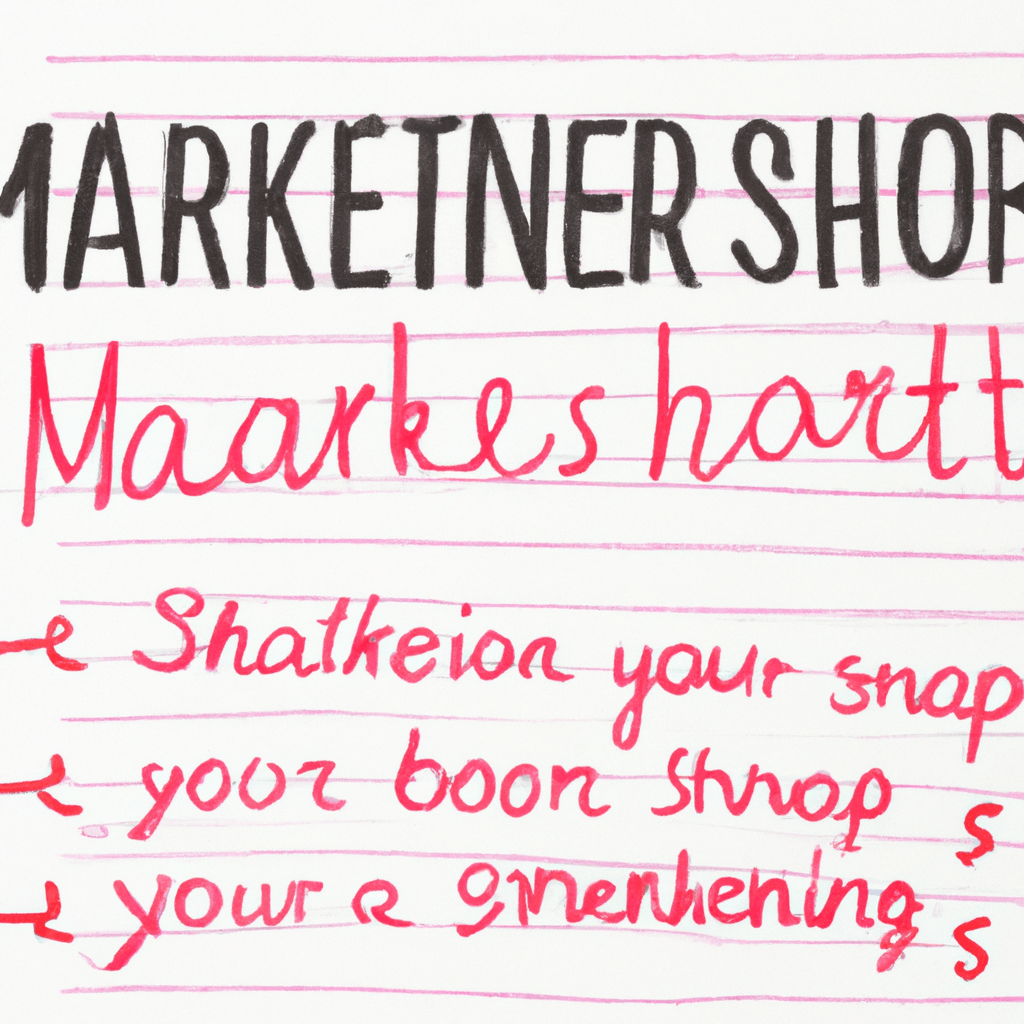 MARKETNER SHOP
Maarkes hartt
Shatkeion your snap
yoor boon Shnop s
your e gmenhening s